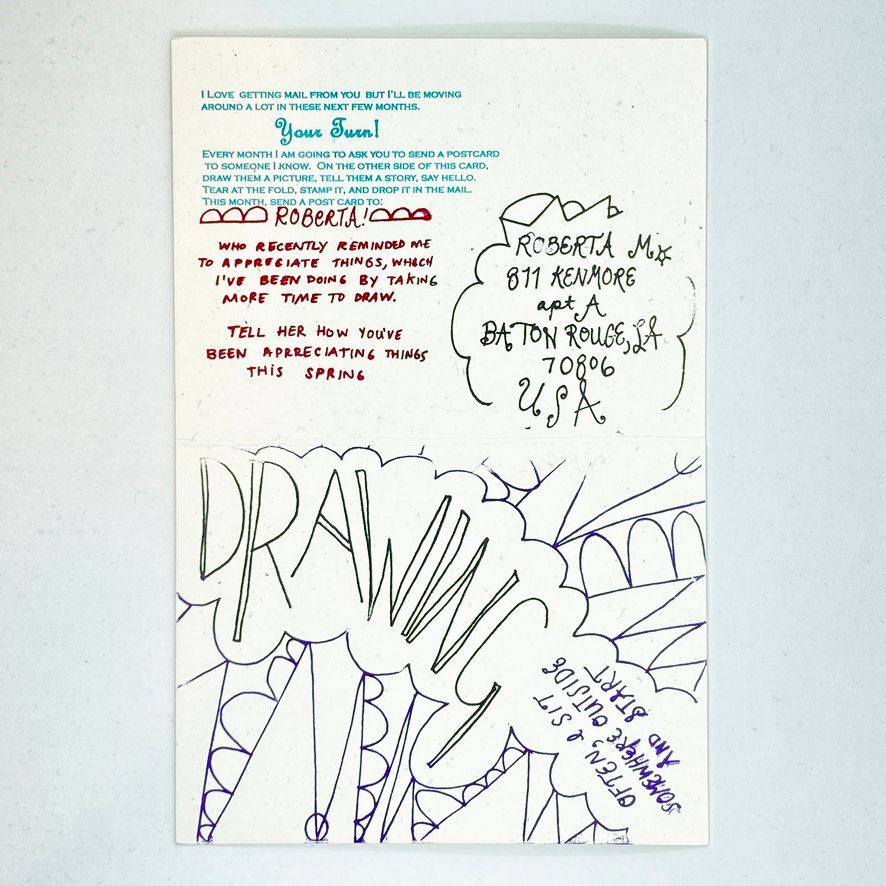 I LOVE GETTING MAIL FROM YOU BUT I'LL BE MOVING
AROUND A LOT IN THESE NEXT FEW MONTHS.
Your Turn!
EVERY MONTH I AM GOING TO ASK YOU TO SEND A POSTCARD
TO SOMEONE I KNOW. ON THE OTHER SIDE OF THIS CARD,
DRAW THEM A PICTURE, TELL THEM A STORY, SAY HELLO.
TEAR AT THE FOLD, STAMP IT, AND DROP IT IN THE MAIL.
THIS MONTH, SEND A POST CARD TO:
ROBERTA!
WHO RECENTLY REMINDED ME
TO APPRECIATE THINGS, WHICH
I'VE BEEN DOING BY TAKING
MORE TIME TO DRAW.
TELL HER HOW YOU'VE
BEEN APRRECIATING THINGS
THIS SPRING
ROBERTA M
811 KENMORE
apt A
BATON ROUGE, LA
70806
USA
DRAWING
OFTEN, I SIT
SOMEWHERE OUTSIDE
AND START